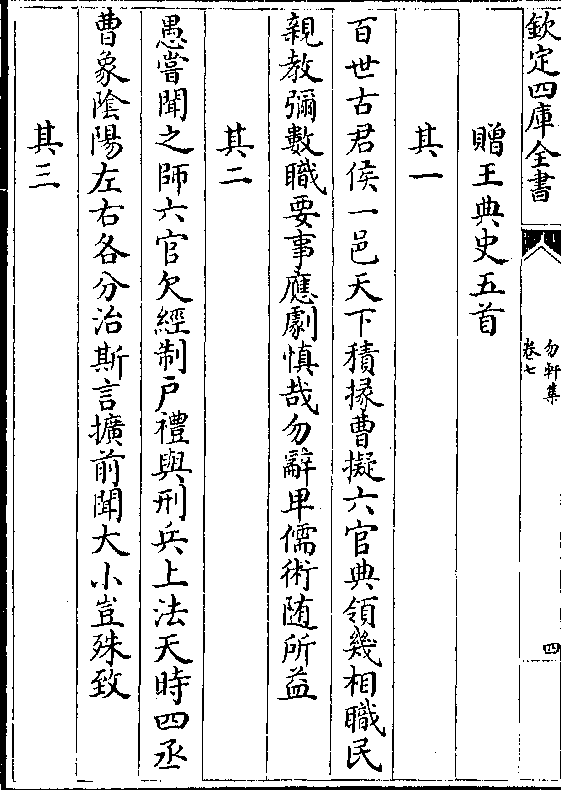 欽定四庫全書
勿軒集
卷七
四
贈王典史五首
其一
百世古君侯一邑天下積掾曹擬六官典領幾相職民
親教彌數職要事應劇慎哉勿辭卑儒術随所益
其二
愚嘗聞之師六官欠經制戸禮與刑兵上法天時四丞
曹象隂陽左右各分治斯言擴前聞大小豈殊致
其三